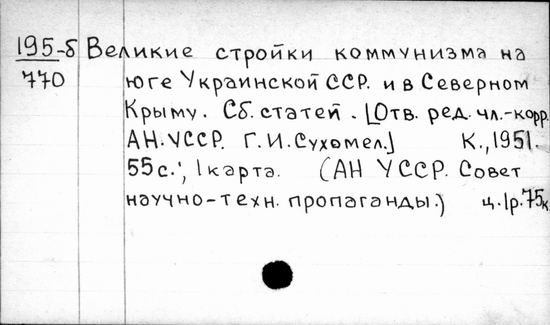 195-б Великие стройки коммунизма на
770 юге Украинской ССР. и в Северном
Крыму. Сб. статей. [Отв. ред. чл.-корр.
АН. УССР. Г. И. Сухомел.] К., 1951.
55 с.; 1 карта. (АН УССР. Совет
научно-техн. пропаганды.) ц. 1р. 75к